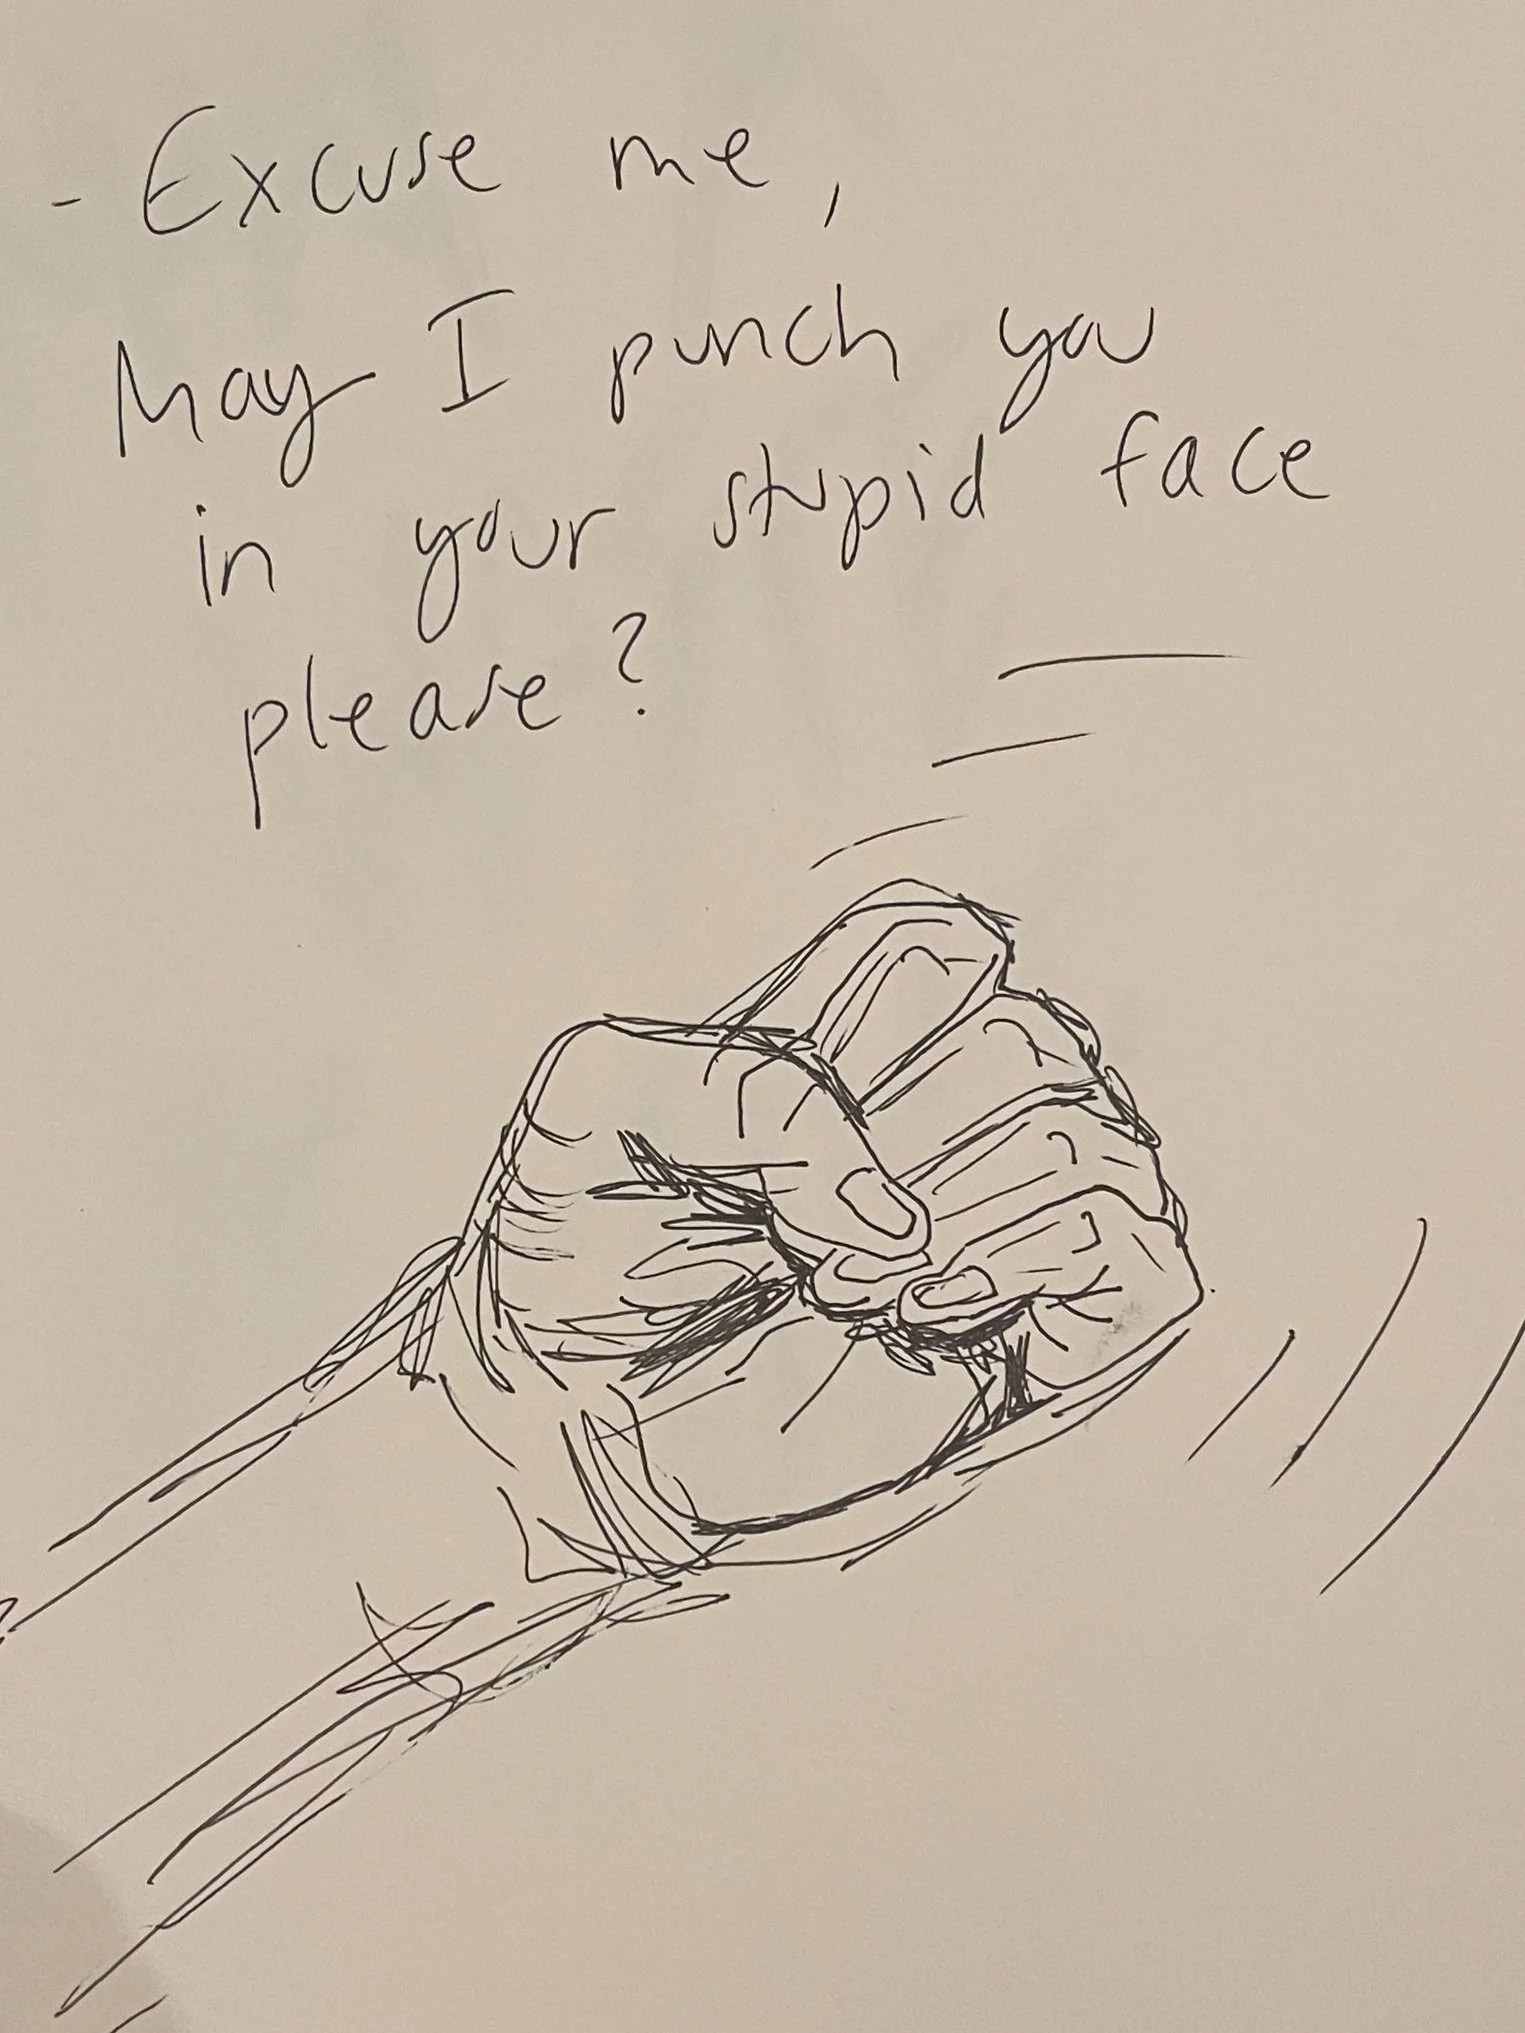 - Excuse me,
May I punch you
in your stupid face
please?